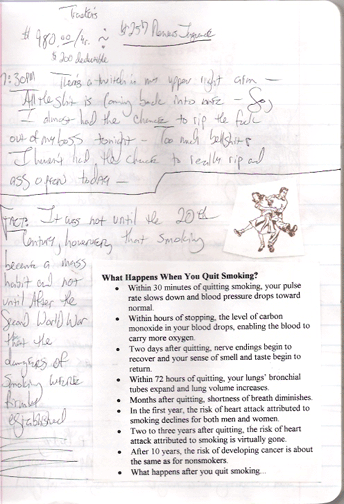 Truckers
$ 980.00/yr. ≈
$ 200 deductable
7:30PM There's a twitch in my upper right arm —
All the shit is coming back into more — So,
I almost had the chance to rip the fuck
out of my boss tonight — Too much bullshit
I haven't had the chance to really rip and
ass open today —
FACT: It was not until the 20th
Century, however, that smoking
became a mass
habit and not
until After the
Second World War
that the
dangers of
smoking were
firmly
established
What Happens When You Quit Smoking?
• Within 30 minutes of quitting smoking, your pulse
rate slows down and blood pressure drops toward
normal.
• Within hours of stopping, the level of carbon
monoxide in your blood drops, enabling the blood to
carry more oxygen.
• Two days after quitting, nerve endings begin to
recover and your sense of smell and taste begin to
return.
• Within 72 hours of quitting, your lungs' bronchial
tubes expand and lung volume increases.
• Months after quitting, shortness of breath diminishes.
• In the first year, the risk of heart attack attributed to
smoking declines for both men and women.
• Two to three years after quitting, the risk of heart
attack attributed to smoking is virtually gone.
• After 10 years, the risk of developing cancer is about
the same as for nonsmokers.
• What happens after you quit smoking...